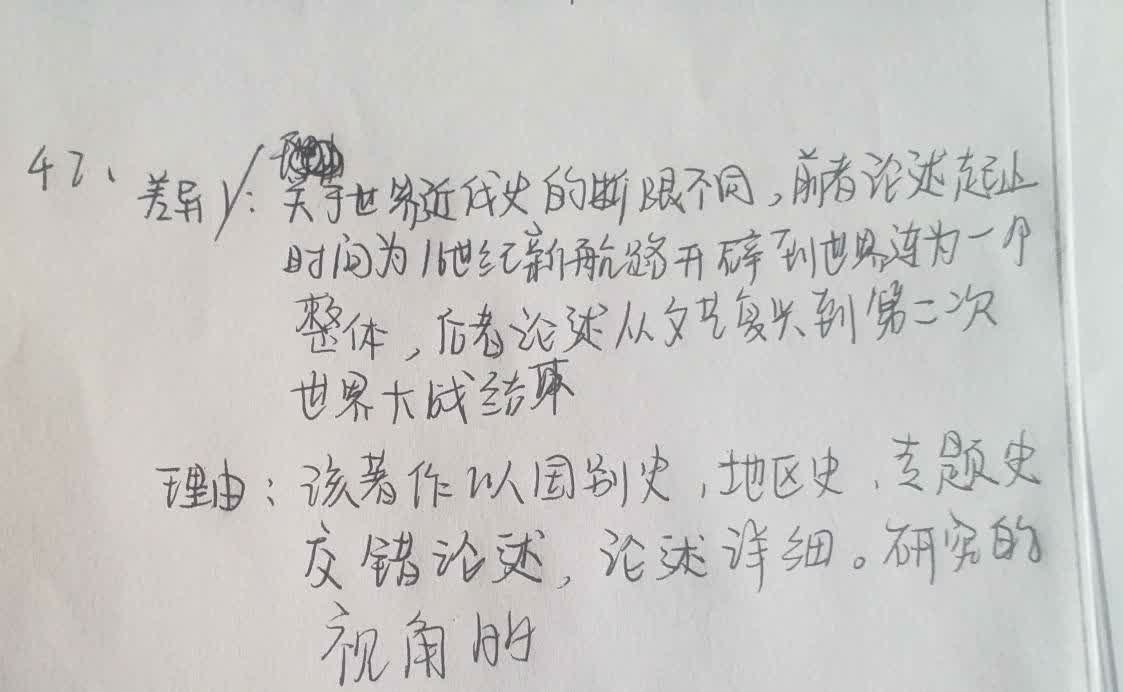 42、
差异1: 关于世界近代史的断限不同,前者论述起止
时间为16世纪新航路开辟到世界连为一个
整体,后者论述从文艺复兴到第二次
世界大战结束
理由:该著作以国别史,地区史,专题史
交错论述,论述详细。研究的
视角